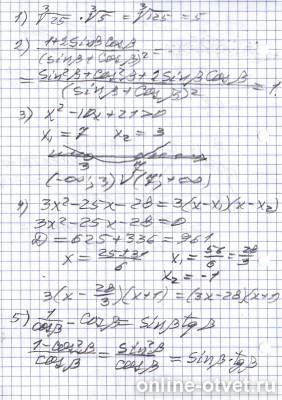 1) ∛25 · ∛5 = ∛125 = 5
2) (1+2sinβcosβ)/(sinβ+cosβ)² =
= (sin²β+cos²β+2sinβcosβ)/(sinβ+cosβ)² = 1.
3) x² - 10x + 21 > 0
x₁ = 7 x₂ = 3
3 7
(-∞; 3) (7; +∞)
4) 3x²-25x-28 = 3(x-x₁)(x-x₂)
3x²-25x-28=0
D = 625+336 = 961
x = (25±31)/6 x₁ = 56/6 = 28/3
x₂ = -1
3(x - 28/3)(x+1) = (3x-28)(x+1)
5) 1/cosβ - cosβ = sinβ tgβ
(1-cos²β)/cosβ = sin²β/cosβ = sinβ·tgβ
online-otvet.ru